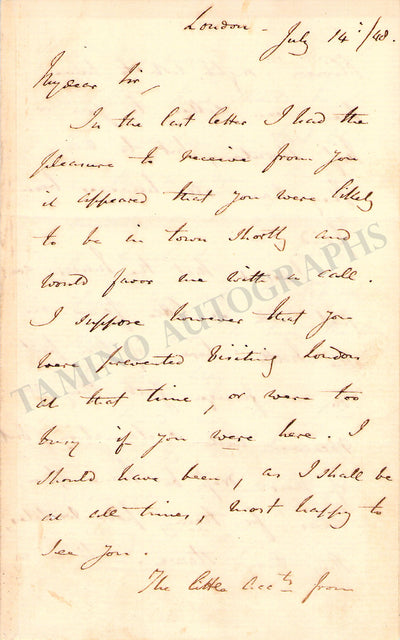 London - July 14:/48.
My dear Sir,
In the last letter I had the
pleasure to receive from you
it appeared that you were likely
to be in town shortly and
would favor me with a call.
I suppose however that you
were prevented visiting London
at that time, or were too
busy if you were here. I
should have been, as I shall be
at all times, most happy to
see you.
The little Accts from
TAMINO AUTOGRAPHS